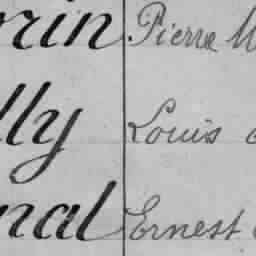 rin Pierre M
lly Louis
nal Ernest